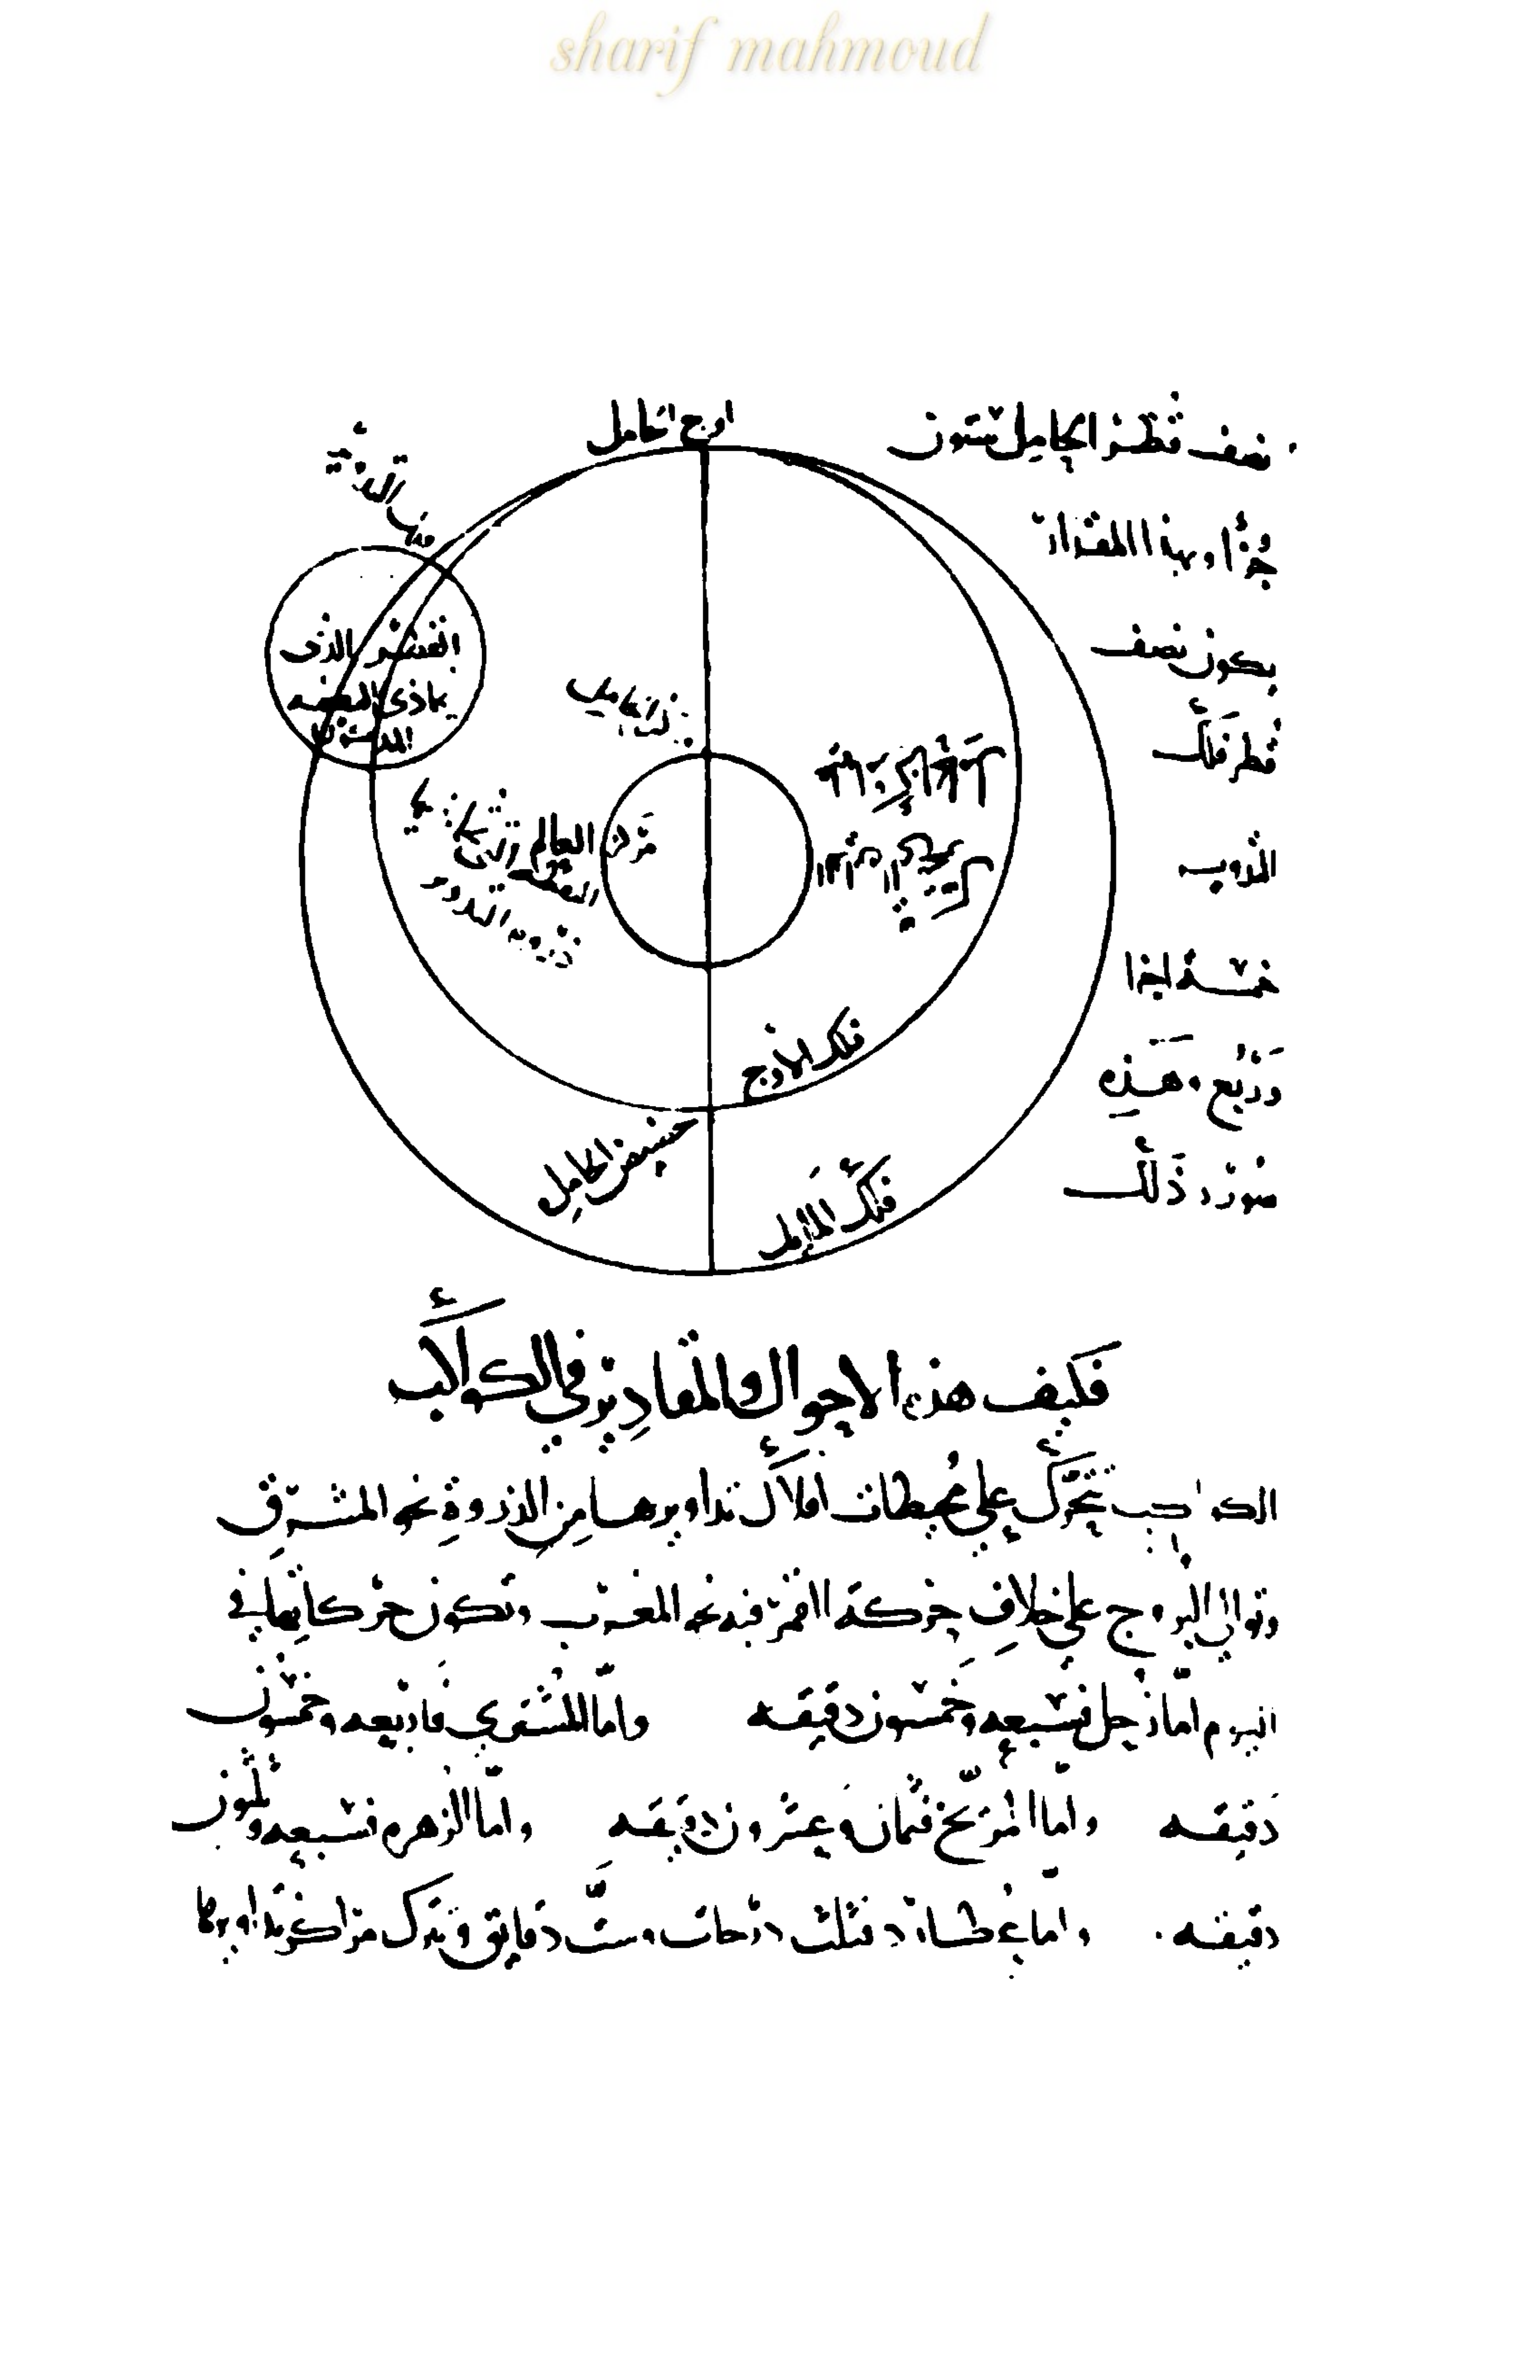 sharif mahmoud
نصف قطر الحامل ستون
جزءا وبهذا المقدار
يكون نصف
قطر فلك
التدوير
خمسة اجزا
وربع وهذه
صورة ذلك
اوج الحامل
القمر الذى
يحاذى النقطة
مركز الحامل
مركز العالم
النقطة التى
ذروة التدوير
فلك الاوج
حضيض الحامل
فلك المايل
فكيف هذه الاحوال والمقادير في الكواكب
الكواكب تتحرك على محيطات افلاك تداويرها من الذروة نحو المشرق
وتوالي البروج على خلاف حركة القمر فيه نحو المغرب وتكون حركاتها في
اليوم اما زحل فسبعه وخمسون دقيقه واما المشتري فاربعه وخمسون
دقيقه واما المريخ فثمان وعشرون دقيقه واما الزهره فسبعه وثلثون
دقيقه واما عطارد فثلث درجات وست دقايق وتتحرك مراكز تداويرها